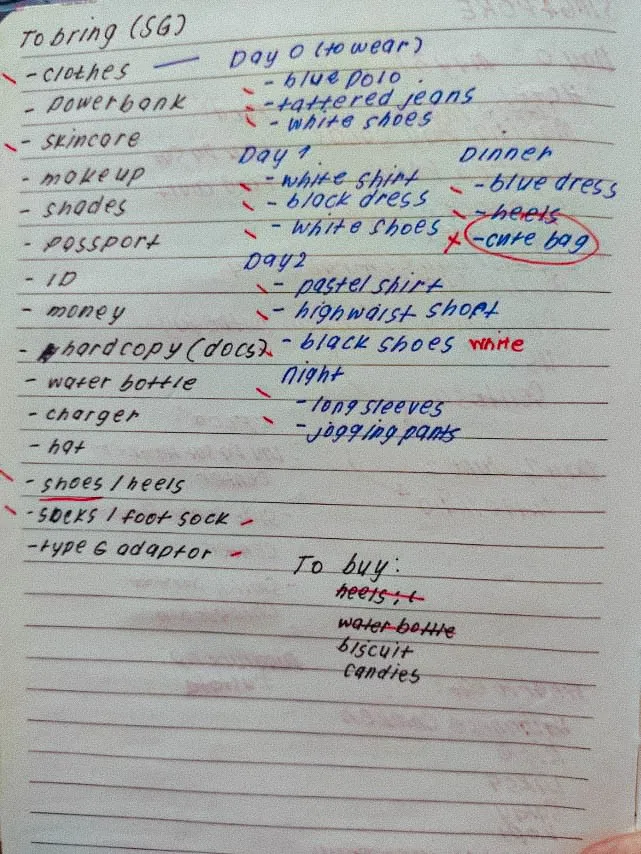 To bring (SG)
- clothes —
- powerbank
- skincare
- makeup
- shades
- passport
- ID
- money
- hardcopy (docs)
- water bottle
- charger
- hat
- shoes / heels
- socks / foot sock
- type G adaptor
Day 0 (to wear)
- blue polo
- tattered jeans
- white shoes
Day 1
- white shirt
- black dress
- white shoes
Dinner
- blue dress
- heels
- cute bag
Day 2
- pastel shirt
- highwaist short
- black shoes white
night
- long sleeves
- jogging pants
To buy:
heels
water bottle
biscuit
candies